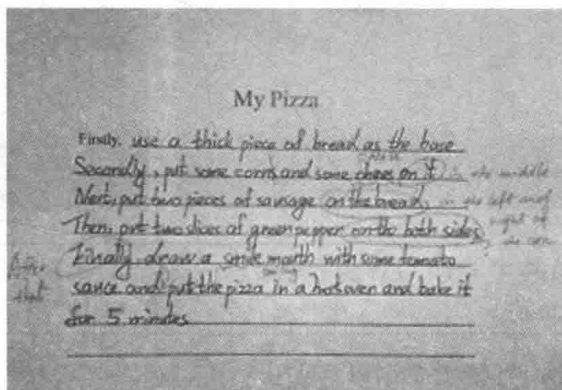 My Pizza
Firstly, use a thick piece of bread as the base
Secondly, put some corns and some chees on it in the middle
Next, put two pieces of sausage on the bread, in the left and
Then, put two slices of green pepper on the both sides right of
After Finally draw a smile mouth with some tomato
that sauce and put the pizza in a hot oven and bake it
for 5 minutes